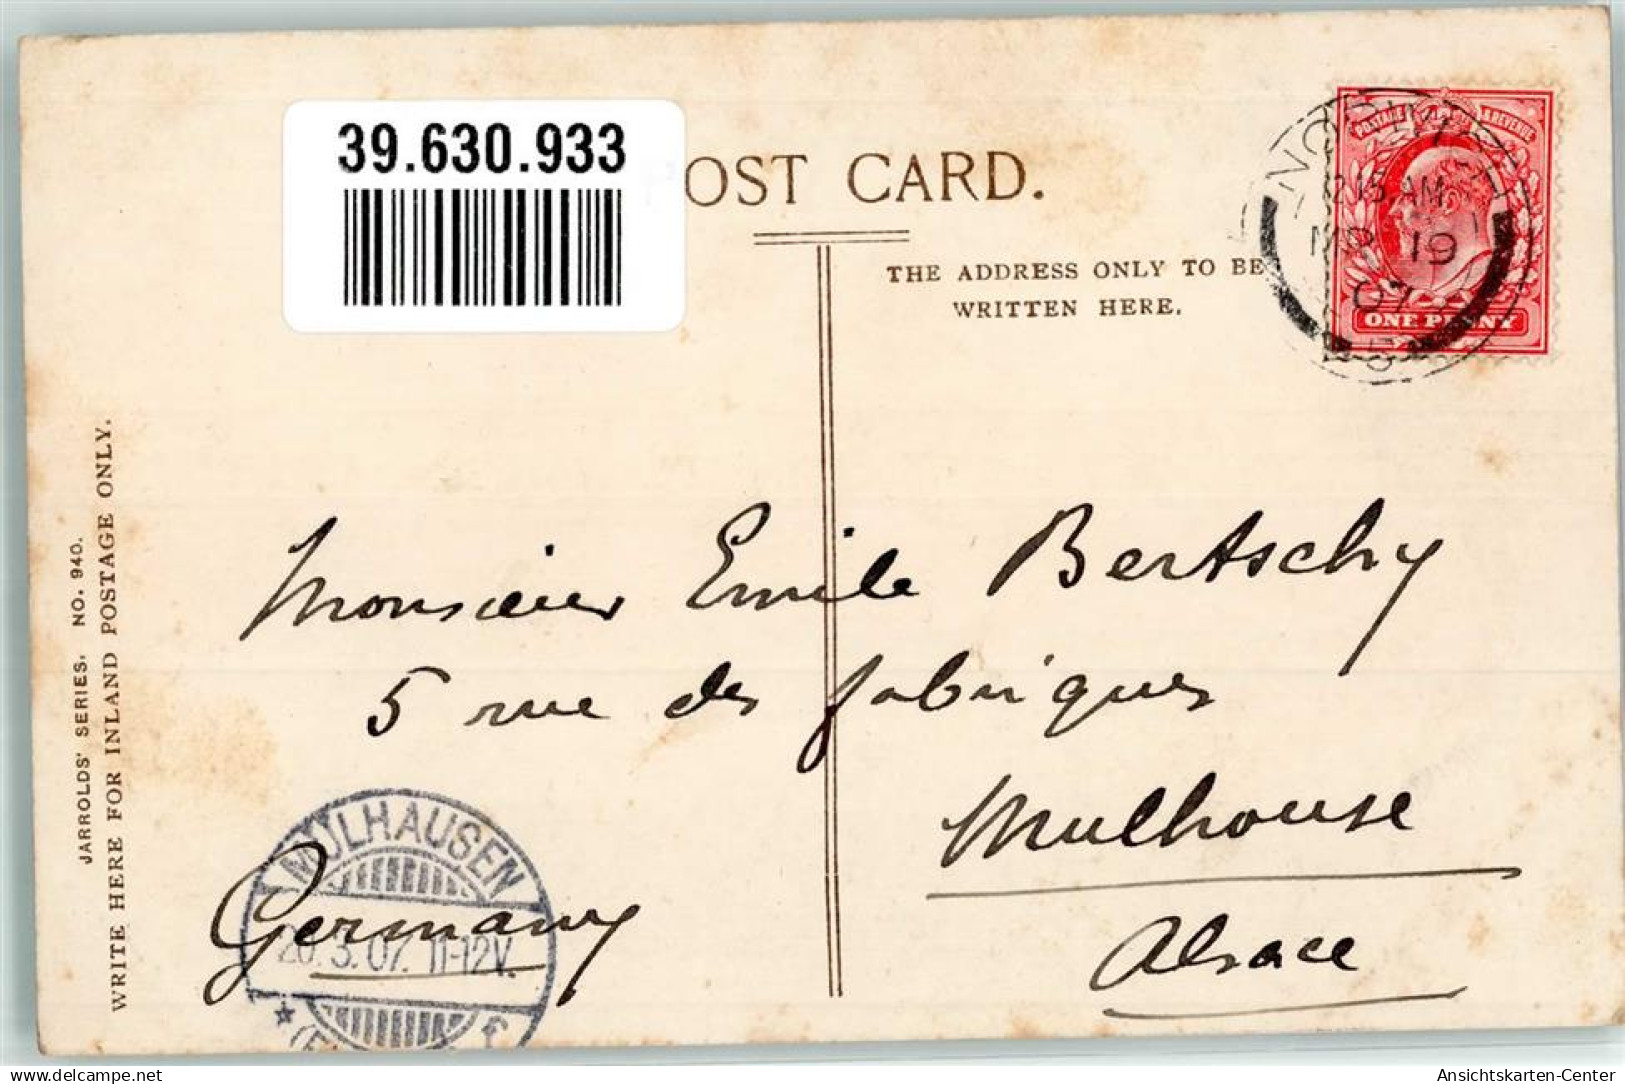 39.630.933
POST CARD.
THE ADDRESS ONLY TO BE
WRITTEN HERE.
POSTAGE & REVENUE
ONE PENNY
NORWICH
1215 AM
MR 19
07
5
JARROLDS' SERIES. NO. 940.
WRITE HERE FOR INLAND POSTAGE ONLY.
Monsieur Emile Bertschy
5 rue des fabriques
Mulhouse
Alsace
Germany
MÜLHAUSEN
20.3.07. 11-12V.
Ansichtskarten-Center